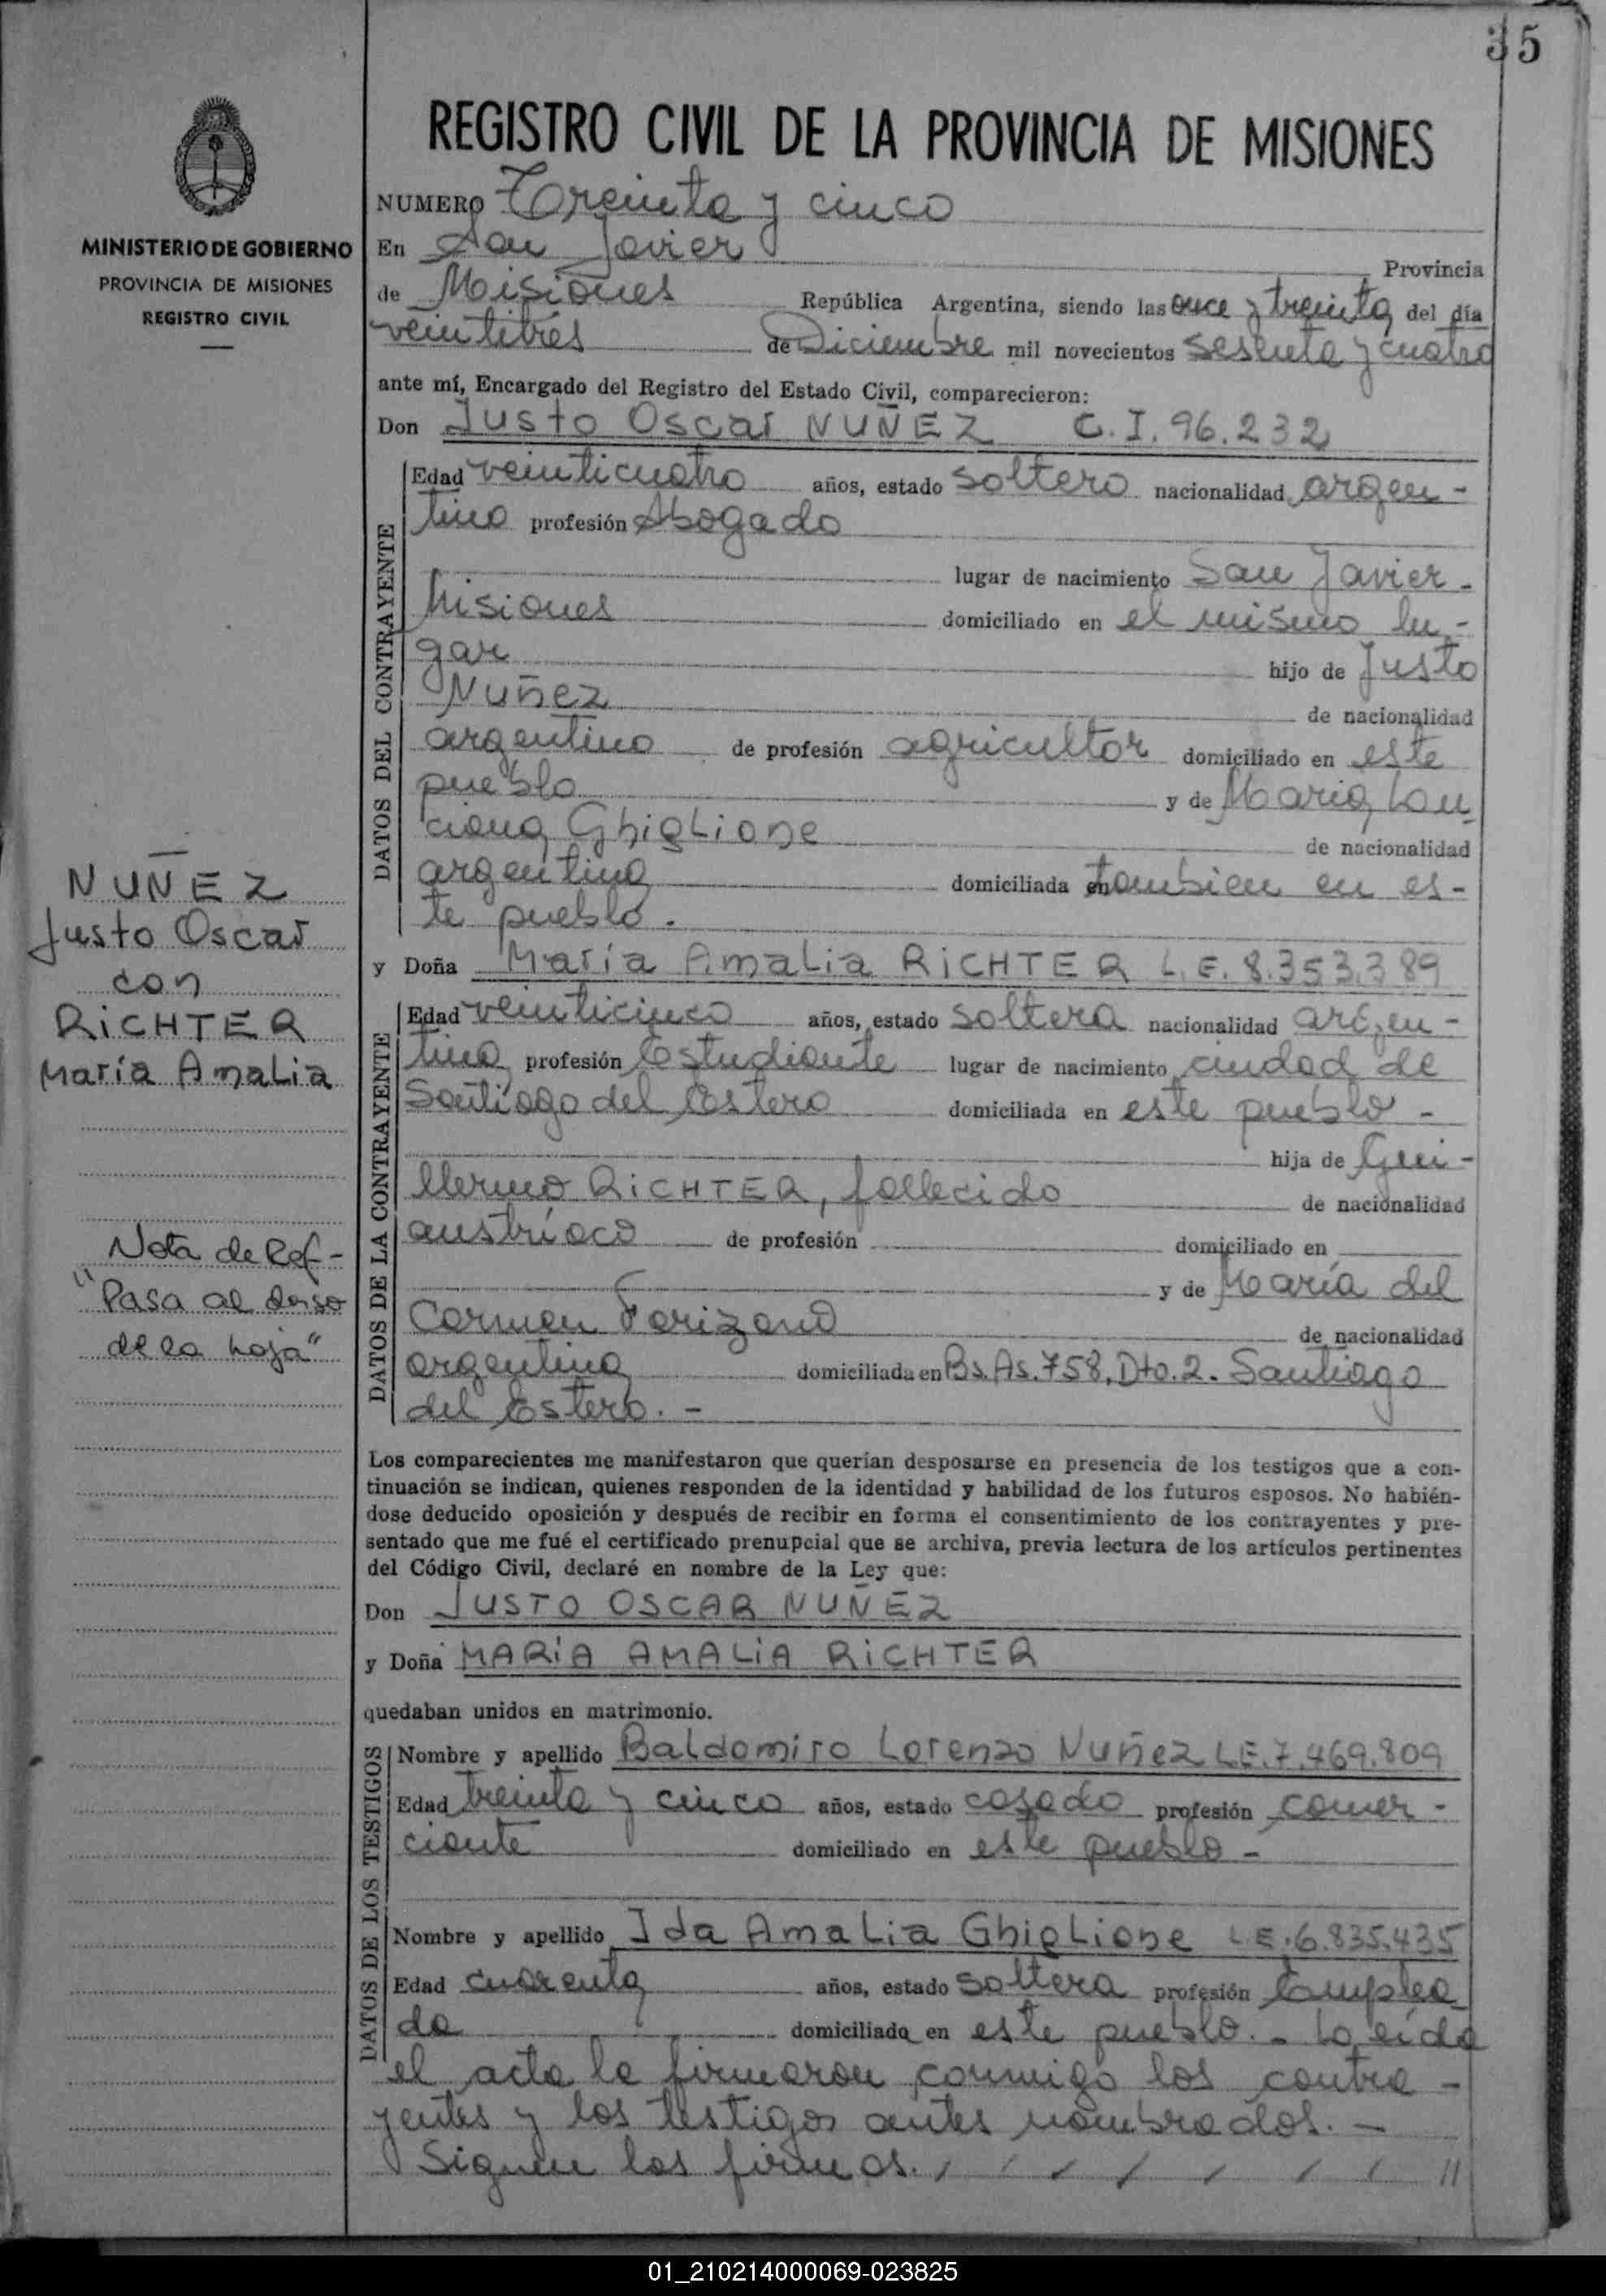 35
REGISTRO CIVIL DE LA PROVINCIA DE MISIONES
MINISTERIO DE GOBIERNO
PROVINCIA DE MISIONES
REGISTRO CIVIL
NUMERO Treinta y cinco
En San Javier Provincia
de Misiones República Argentina, siendo las once y treinta del día
veintitres de Diciembre mil novecientos sesenta y cuatro
ante mí, Encargado del Registro del Estado Civil, comparecieron:
Don Justo Oscar NUÑEZ C.I. 96.232
DATOS DEL CONTRAYENTE
Edad veinticuatro años, estado soltero nacionalidad argen-
tino profesión Abogado
lugar de nacimiento San Javier -
Misiones domiciliado en el mismo lu-
gar hijo de Justo
Nuñez de nacionalidad
argentino de profesión agricultor domiciliado en este
pueblo y de María
Ghiglione de nacionalidad
argentina domiciliada en tambien en es-
te pueblo.
y Doña María Amalia RICHTER L.E. 8.353.389
DATOS DE LA CONTRAYENTE
Edad veinticinco años, estado soltera nacionalidad argen-
tina profesión Estudiante lugar de nacimiento ciudad de
Santiago del Estero domiciliada en este pueblo -
hija de Gui-
llermo RICHTER, fallecido de nacionalidad
austríaco de profesión domiciliado en
y de María del
Carmen de nacionalidad
argentina domiciliada en Bs.As. 758, Dto. 2. Santiago
del Estero. -
Los comparecientes me manifestaron que querían desposarse en presencia de los testigos que a con-
tinuación se indican, quienes responden de la identidad y habilidad de los futuros esposos. No habién-
dose deducido oposición y después de recibir en forma el consentimiento de los contrayentes y pre-
sentado que me fué el certificado prenupcial que se archiva, previa lectura de los artículos pertinentes
del Código Civil, declaré en nombre de la Ley que:
Don JUSTO OSCAR NUÑEZ
y Doña MARIA AMALIA RICHTER
quedaban unidos en matrimonio.
DATOS DE LOS TESTIGOS
Nombre y apellido Baldomiro Lorenzo Nuñez L.E. 7.469.809
Edad treinta y cinco años, estado casado profesión comer-
ciante domiciliado en este pueblo -
Nombre y apellido Ida Amalia Ghiglione L.E. 6.835.435
Edad cuarenta años, estado soltera profesión Emplea
da domiciliada en este pueblo. - Leída
el acta la firmaron conmigo los contra-
yentes y los testigos antes nombrados. -
Siguen las firmas. / / / / / / / //
NUÑEZ
Justo Oscar
con
RICHTER
María Amalia
Nota de Ref-
"Pasa al dorso
de la hoja"
01_210214000069-023825